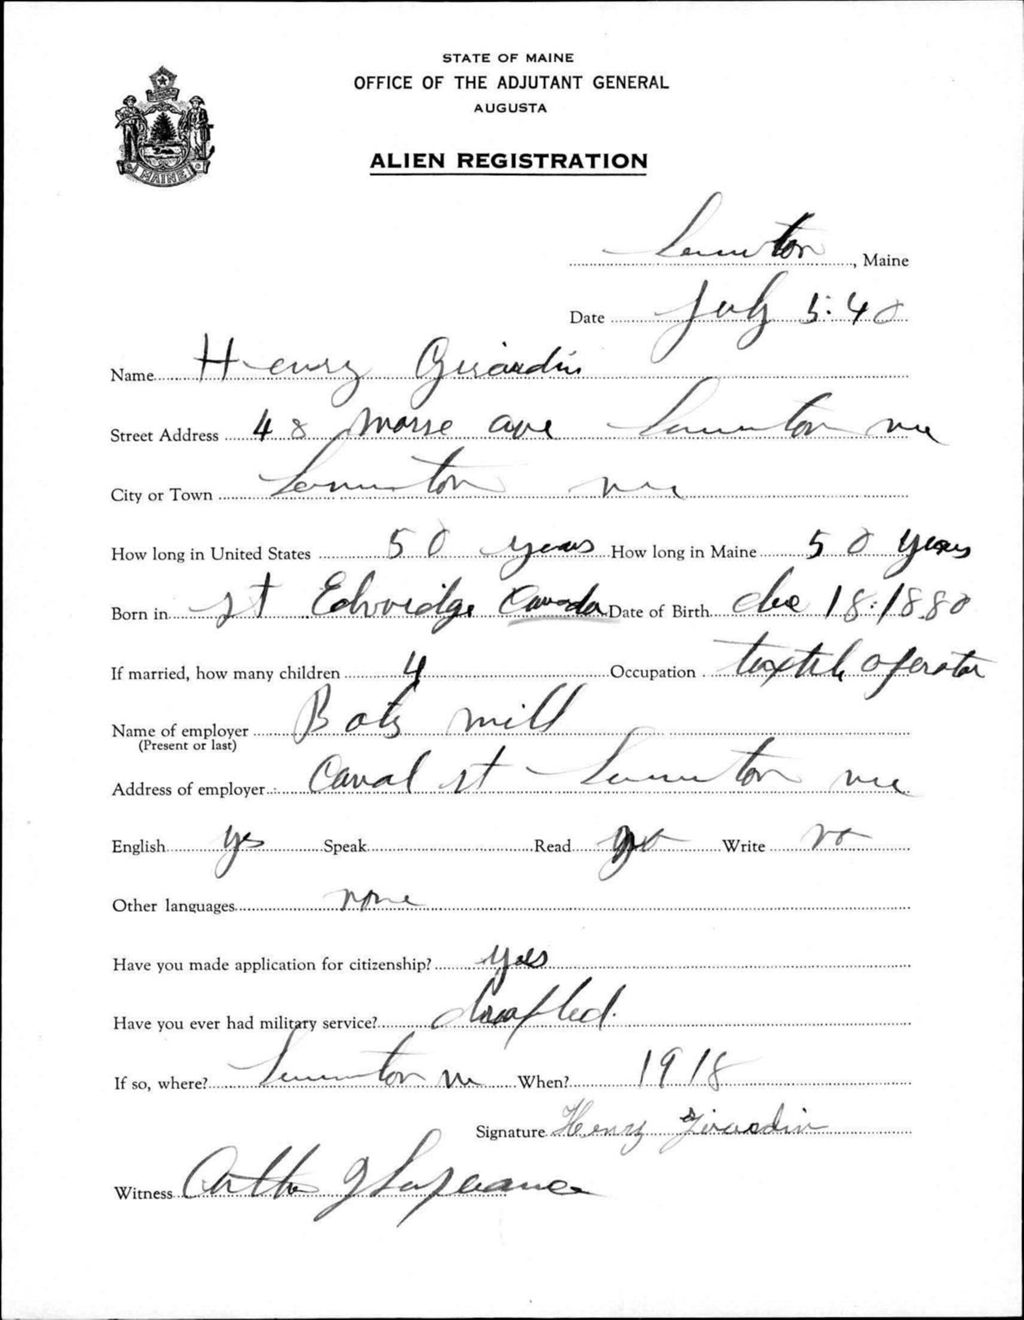 STATE OF MAINE
OFFICE OF THE ADJUTANT GENERAL
AUGUSTA
MAINE
ALIEN REGISTRATION
Lewiston, Maine
Date July 5.40
Name Henry Girardin
Street Address 48 Morse ave Lewiston me
City or Town Lewiston me
How long in United States 50 years How long in Maine 50 years
Born in st Edwidge Canada Date of Birth dec 18.1880
If married, how many children 4 Occupation textile operator
Name of employer Bates mill
(Present or last)
Address of employer Canal st Lewiston me
English yes Speak Read Write no
Other languages none
Have you made application for citizenship? yes
Have you ever had military service? drafted.
If so, where? Lewiston me When? 1918
Signature Henry Girardin
Witness